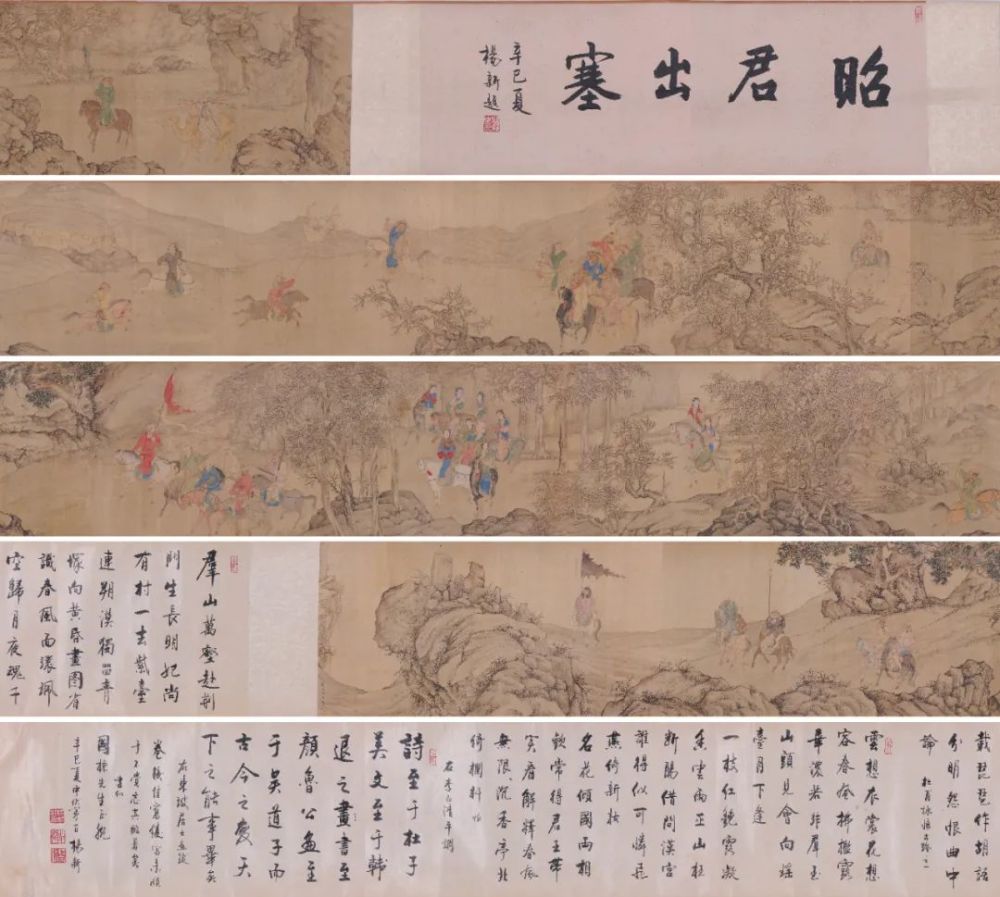 昭君出塞
辛巳夏
楊新題
羣山萬壑赴荆
門生長明妃尚
有村一去紫臺
連朔漠獨留青
塚向黄昏畫圖省
識春風面環珮
空歸月夜魂千
載琵琶作胡語
分明怨恨曲中
論 杜甫詠懷古跡之一
雲想衣裳花想
容春風拂檻露
華濃若非羣玉
山頭見會向瑶
臺月下逢
一枝紅艷露凝
香雲雨巫山枉
斷腸借問漢宫
誰得似可憐飛
燕倚新妝
名花傾國両相
歡常得君王帶
笑看解釋春風
無限沉香亭北
倚欄杆
右李白清平調
詩至于杜子
美文至于韓
退之畫書至
顔魯公畫至
于吴道子而
古今之變天
下之能事畢矣
右東坡居士画跋
國 先生
辛巳夏 楊新